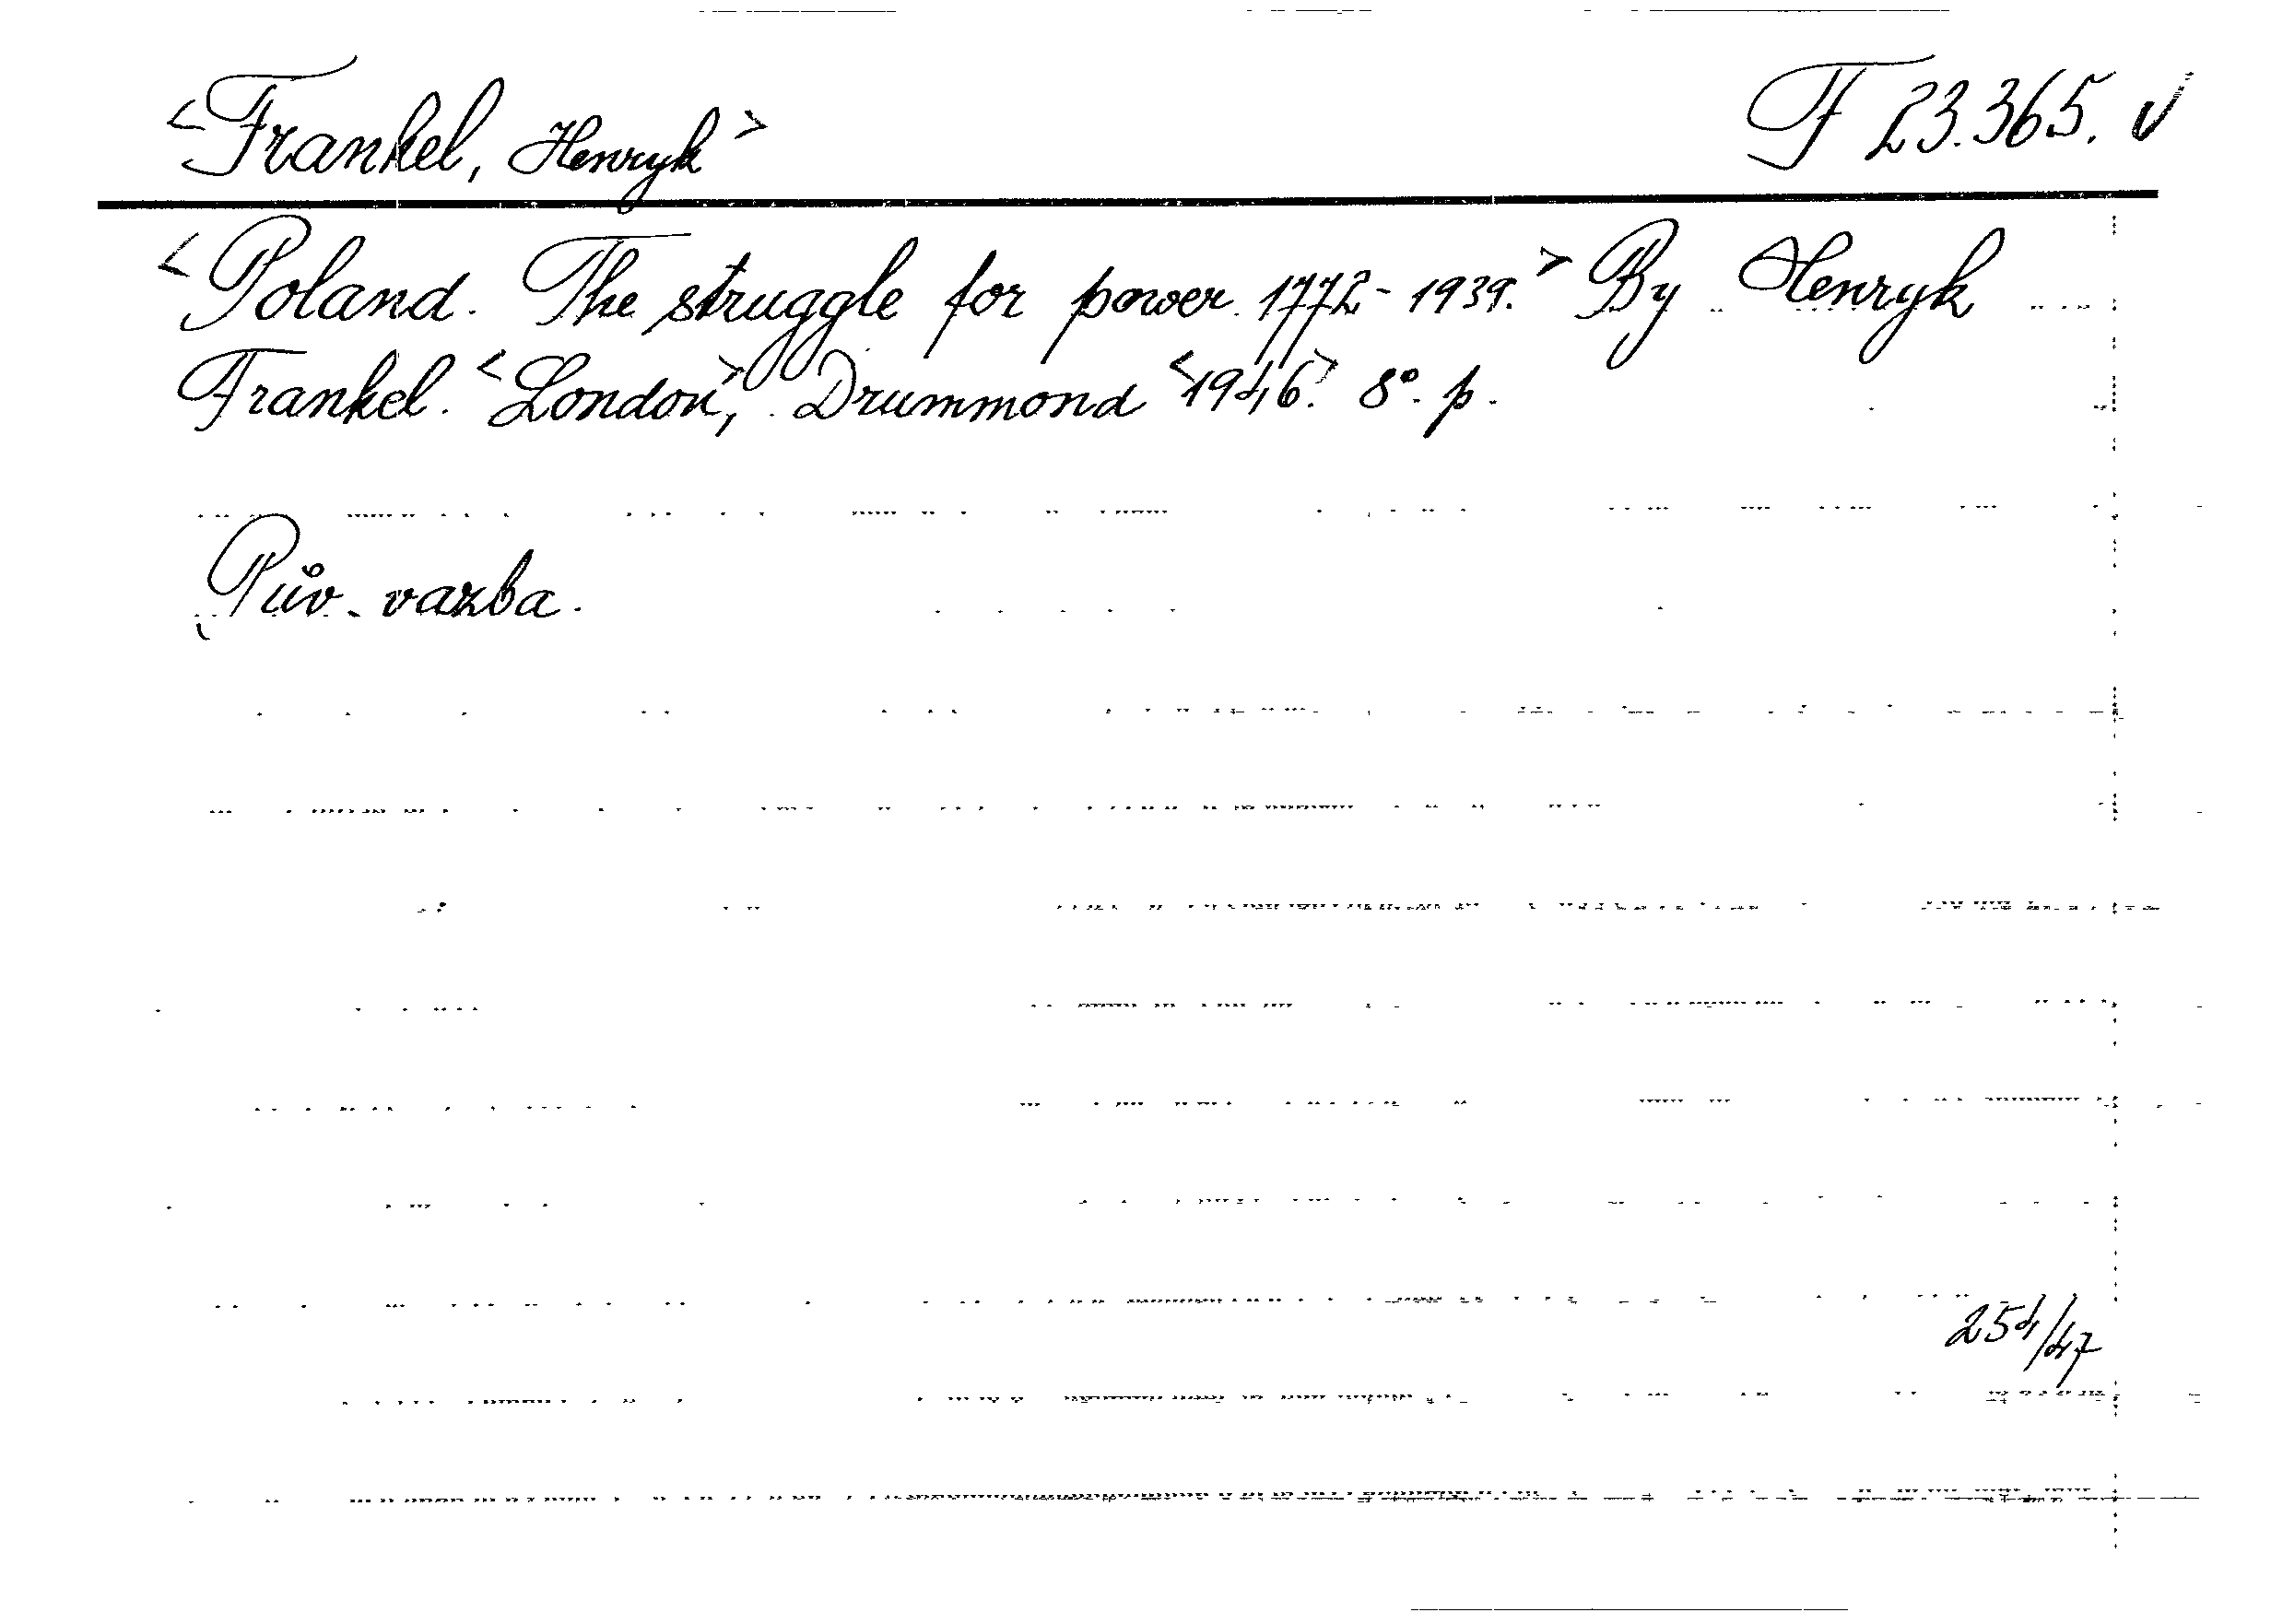 <Frankel, Henryk> F 23.365. √
<Poland. The struggle for power 1772-1939.> By Henryk
Frankel. <London,> Drummond <1946.> 8°. p.
Pův. vazba.
254/47